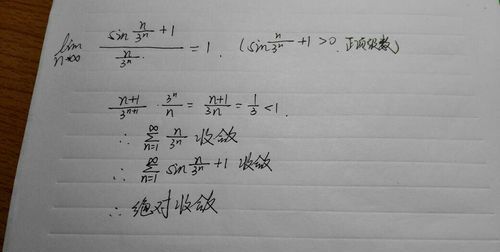 lim n→∞ (sin n/3ⁿ + 1)/(n/3ⁿ) = 1. (sin n/3ⁿ + 1 > 0. 正项级数)
(n+1)/3ⁿ⁺¹ · 3ⁿ/n = (n+1)/3n = 1/3 < 1.
∴ ∑_{n=1}^{∞} n/3ⁿ 收敛
∴ ∑_{n=1}^{∞} sin n/3ⁿ + 1 收敛
∴ 绝对收敛